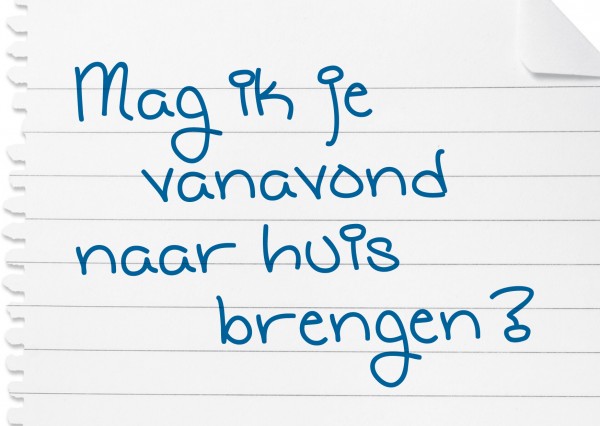 Mag ik je
vanavond
naar huis
brengen?